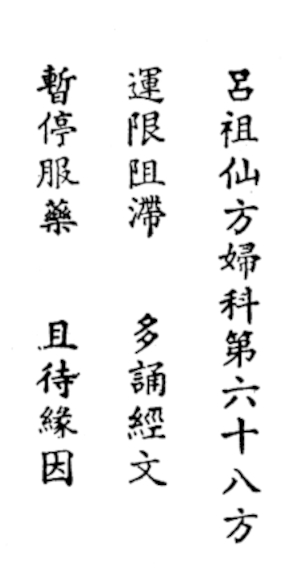 呂祖仙方婦科第六十八方
運限阻滯　多誦經文
暫停服藥　且待緣因